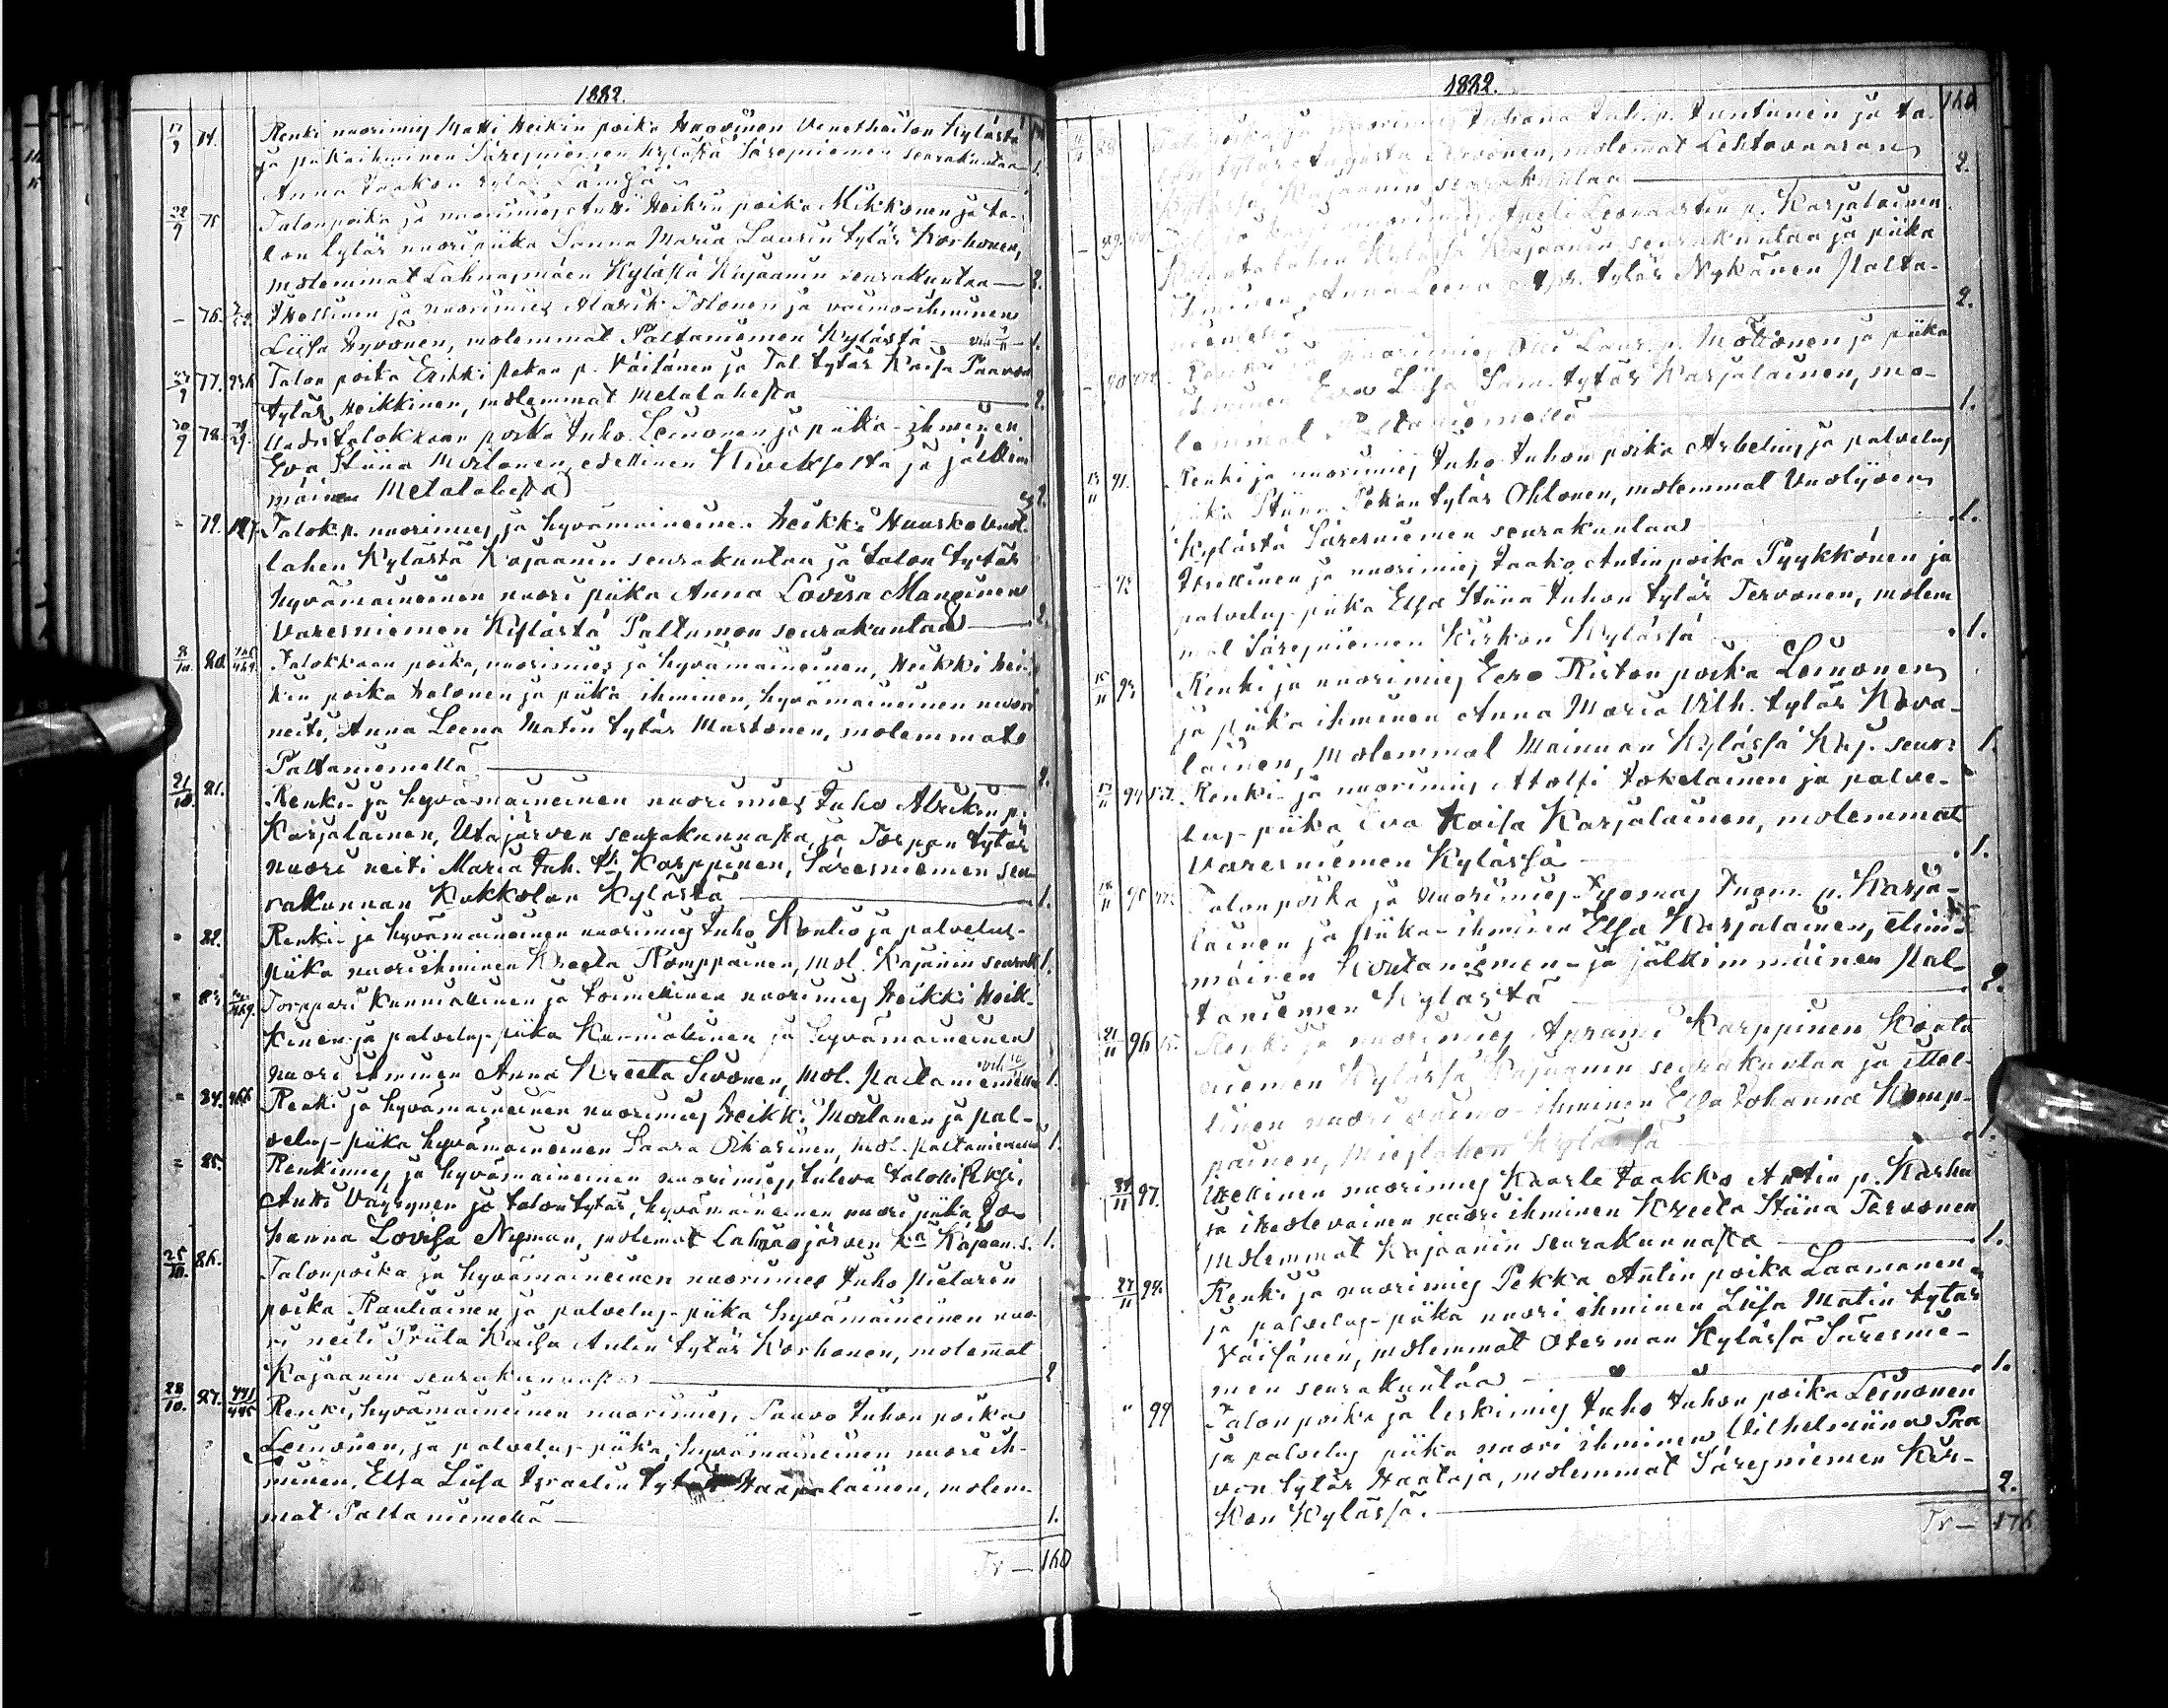 1882.
17/9 74. Renki nuorimies Matti Heikin poika Huovinen Venetheiton Kylästä
ja piikaihminen Säresniemen Kylästä Säresniemen seurakuntaa 1.
Anna Jaakon tytär
22/9 75 Talonpoika ja nuorimies Antti Heikin poika Mikkonen ja ta-
lon tytär nuori piika Sanna Maria Laurin tytär Korhonen,
molemmat Lahnasmäen Kylästä Kajaanin seurakuntaa — 2.
– 76. Itsellinen ja nuorimies Alarik Tolonen ja vaimo-ihminen
Liisa Hyvönen, molemmat Paltaniemen Kylästä 1.
77. Talon poika Erikki Pekan p. Väisänen ja Tal. tytär Kaisa Paavon
tytär Heikkinen, molemmat Metelahesta 2.
78. Uudistalokkaan poika Juho Leinonen ja piika-ihminen
Eva Stiina Mustonen, edellinen ja jälkim
mäinen Metelahesta 2
79. Talok.p. nuorimies ja hyvämaineinen Heikki Huusko
lahen Kylästä Kajaanin seurakuntaa ja talon tytär
hyvämaineinen nuori piika Anna Lovisa Manninen
Varesniemen Kylästä Paltamon seurakuntaa — 2.
8/10. 80. Talokkaan poika, nuorimies ja hyvämaineinen, Heikki Hei-
kin poika Halonen ja piika ihminen, hyvämaineinen nuori
neiti, Anna Leena Matin tytär Mustonen, molemmat
Paltaniemellä 2.
21/10. 81. Renki- ja hyvämaineinen nuorimies Juho Abrikin p.
Karjalainen, Utajärven seurakunnasta, ja Torpan tytär
nuori neiti Maria Juh. tr. Karppinen, Säresniemen seu-
rakunnan Kukkolan Kylästä 1.
" 82. Renki- ja hyvämaineinen nuorimies Juho Kontio ja palvelus-
piika nuori ihminen Kreeta Komppainen, mol. Kajaanin seurak 1.
" 83. Torppari Kunniallinen ja toimellinen nuorimies Heikki Heik-
kinen ja palvelus-piika Kunniallinen ja hyvämaineinen
nuori ihminen Anna Kreeta Sivonen, mol. Paltaniemellä 1.
" 84. 466 Renki ja hyvämaineinen nuorimies Heikki Mustonen ja pal-
velus-piika hyvämaineinen Saara Oikarinen, mol. Paltaniemellä 1.
" 85. Renkimies ja hyvämaineinen nuorimies, tuleva talolliseksi
Antti Väyrynen ja talon tytär, hyvämaineinen nuori piika Jo-
hanna Lovisa Nyman, molemat Lahnasjärven Kajaan. s. 1.
25/10. 86. Talonpoika ja hyvämaineinen nuorimies Juho Pietarin
poika Rautiainen ja palvelus-piika hyvämaineinen nuo-
ri neiti Priita Kaisa Antin tytär Korhonen, molemat
Kajaanin seurakunnasta 2
28/10. 87. 441/445 Renki, hyvämaineinen nuorimies, Paavo Juhon poika
Leinonen, ja palvelus-piika, hyvämaineinen nuori ih-
minen, Elsa Liisa Israelin tytär Haapalainen, molem-
mat Paltaniemellä — 1.
Tr — 160
1882.
160
88. poika ja nuorimies Juhana Juh. p. Juntunen ja ta-
lon tytär Augusta Tervonen, molemat Lehtovaaran
Kylästä, Kajaanin seurakuntaa 2.
– 89. nuorimies Antti Leonartin p. Karjalainen
Kylässä Kajaanin seurakuntaa ja piika
ihminen Anna Leena tytär Nykänen Palta-
niemellä 2.
– 90 Renki ja nuorimies Olli Laur. p. Möttönen ja piika
ihminen Eva Liisa Sam. tytär Karjalainen, mo-
lemmat Paltaniemellä 1.
13/11 91. Renki ja nuorimies Juho Juhon poika Arbelius ja palvelus
piika Stiina Pekan tytär Ohtonen, molemmat Vuolijoen
Kylästä Säresniemen seurakuntaa 1.
– 92 Itsellinen ja nuorimies Jaako Antin poika Pyykkönen ja
palvelus-piika Elsa Stiina Juhon tytär Tervonen, molem
mat Säresniemen Kirkon Kylässä 1.
15/11 93 Renki ja nuorimies Eero Riston poika Leinonen
ja piika ihminen Anna Maria Vilh. tytär Kova-
lainen, molemmat Mainuan Kylässä Kaj. seur: 1.
94 Renki- ja nuorimies Atolfi Tokelainen ja palve-
lus-piika Eva Kaisa Karjalainen, molemmat
Varesniemen Kylässä 1.
95 Talonpoika ja nuorimies Tuomas Tuom. p. Karja-
lainen ja piika-ihminen Elsa Karjalainen, ensim-
mäinen Koutaniemen- ja jälkimmäinen Pal-
taniemen Kylästä 2.
21/11 96 Renki ja nuorimies Aprami Karppinen Kouta
niemen Kylässä Kajaanin seurakuntaa ja itsel-
linen nuori vaimo-ihminen Elsa Johanna Komp-
painen, Mieslahen Kylässä 1.
97. Itsellinen nuorimies Kaarle Jaakko Antin p. Karhu
ja itseolevainen nuori ihminen Kreeta Stiina Tervonen
molemmat Kajaanin seurakunnasta 1.
27/11 98. Renki ja nuorimies Pekka Antin poika Laamanen
ja palvelus-piika nuori ihminen Liisa Matin tytär
Väisänen, molemmat Oterman Kylässä Säresnie-
men seurakuntaa 1.
" 99 Talonpoika ja leskimies Juho Juhon poika Leinonen
ja palvelus piika nuori ihminen Vilhelmiina Paa
von tytär Haataja, molemmat Säresniemen Kir-
kon Kylässä. 2.
Tr — 176